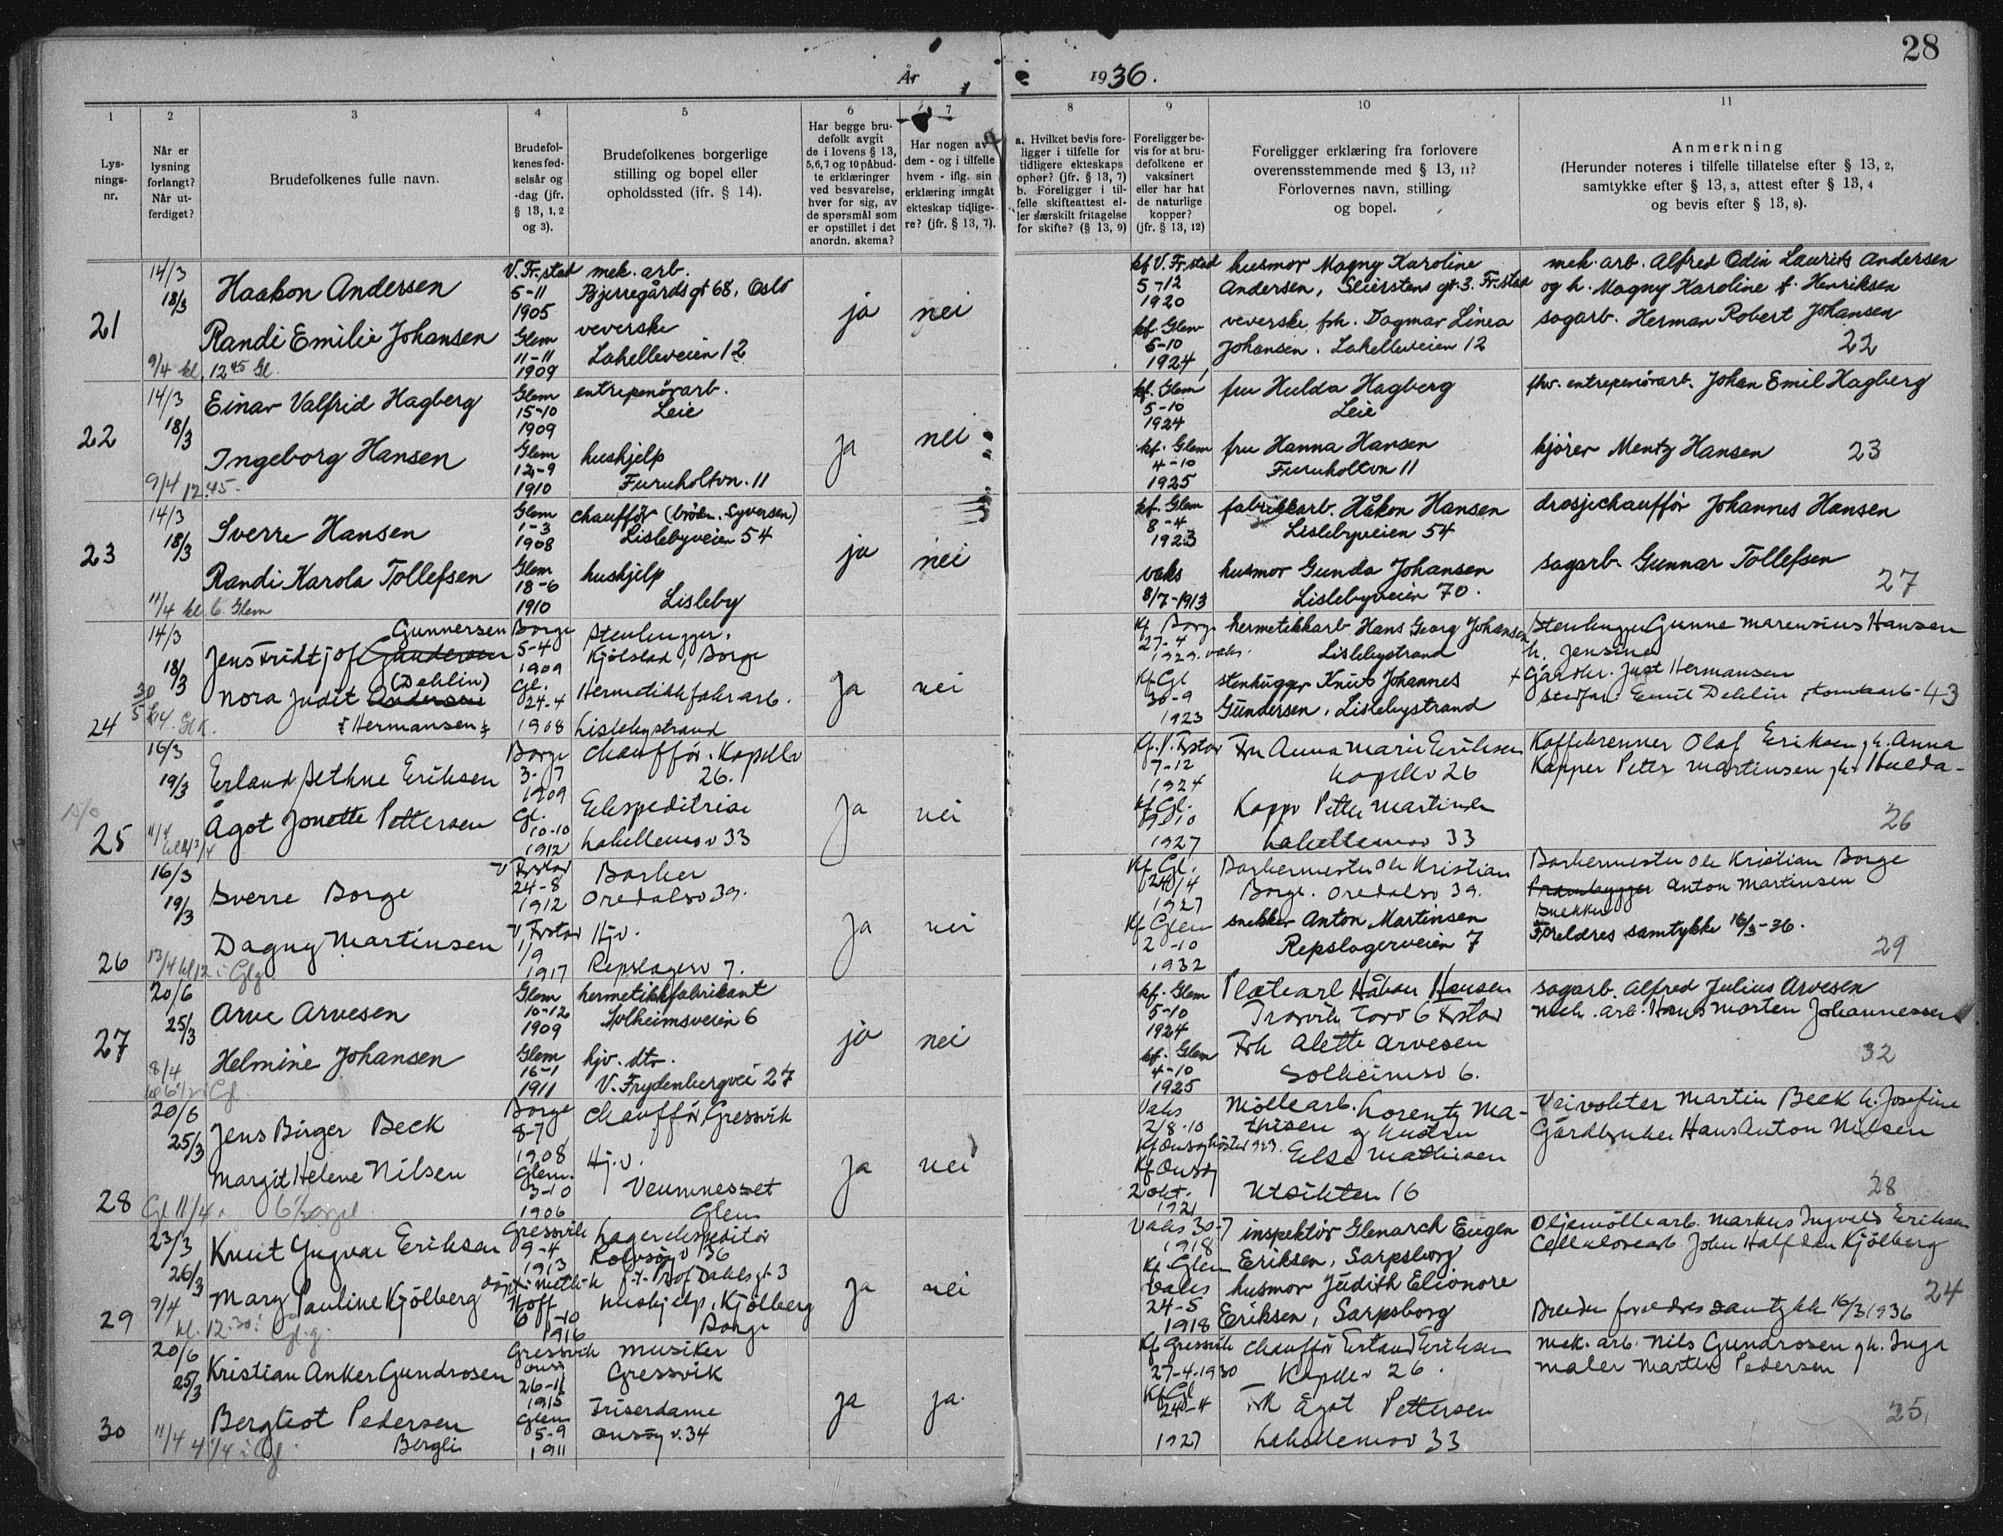 År 1936.
28
1
Lysnings-nr.
2
Når er lysning forlangt? Når utferdiget?
3
Brudefolkenes fulle navn.
4
Brudefolkenes fødselsår og -dag (jfr. § 13, 1, 2 og 3).
5
Brudefolkenes borgerlige stilling og bopel eller opholdssted (ifr. § 14).
6
Har begge brudefolk avgitt de i lovens § 13, 5,6,7 og 10 påbudte erklæringer ved besvarelse, hver for sig, av de spørsmål som er opstillet i det anordn. skema?
7
Har nogen av dem - og i tilfelle hvem - iflg. sin erklæring inngått ekteskap tidligere? (jfr. § 13, 7).
8
a. Hvilket bevis foreligger i tilfelle for tidligere ekteskaps ophør? (jfr. § 13, 7) b. Foreligger i tilfelle skifteattest eller særskilt fritagelse for skifte? (§ 13, 9)
9
Foreligger bevis for at brudefolkene er vaksinert eller har hat de naturlige kopper? (jfr. § 13, 12)
10
Foreligger erklæring fra forlovere overensstemmende med § 13, 11? Forlovernes navn, stilling og bopel.
11
Anmerkning
(Herunder noteres i tilfelle tillatelse efter § 13, 2, samtykke efter § 13, 3, attest efter § 13, 4 og bevis efter § 13, 8).
21
14/3
18/3
9/4 kl. 12 45 Gl.
Haakon Andersen
Randi Emilie Johansen
V. Fr.stad
5-11
1905
Glem
11-11
1909
mek. arb.
Bjerregårds gt 68, Oslo
veverske
Lahelleveien 12
ja
nei
kf V. Fr.stad
5-12
1920
kf. Glem
5-10
1924
husmor Magny Karoline
Andersen, Seierstens gt. 3. Fr.stad
veverske frk. Dagmar Linea
Johansen. Lahelleveien 12
mek. arb. Alfred Odin Laurits Andersen
og h. Magny Karoline f. Henriksen
sagarb. Herman Robert Johansen
22
22
14/3
18/3
9/4 12.45-
Einar Valfrid Hagberg
Ingeborg Hansen
Glem
15-10
1909
Glem
12-9
1910
entreprenörarb.
Leie
hushjelp
Furuholtvn. 11
ja
nei
kf. Glem
5-10
1924
kf. Glem
4-10
1925
fru Hulda Hagberg
Leie
fru Hanna Hansen
Furuholtvn 11
fhv. entreprenörarb. Johan Emil Hagberg
kjörer Mentz Hansen
23
23
14/3
18/3
11/4 kl. 6 Glem
Sverre Hansen
Randi Karola Tollefsen
Glem
1-3
1908
Glem
18-6
1910
chaufför (brödr. Syversen)
Lislebyveien 54
hushjelp
Lisleby
ja
nei
kf. Glem
8-4
1923
vaks
8/7-1913
fabrikkarb. Håkon Hansen
Lislebyveien 54
husmor Gunda Johansen
Lislebyveien 70.
drosjechaufför Johannes Hansen
sagarb. Gunnar Tollefsen
27
24
14/3
18/3
30/5
Gunnersen
Jens Fridtjof Gundersen
(Dehlin)
Nora Judit Andersen
Hermansen
Borge
5-4
1909
Gl.
24-4
1908
Stenhugger.
Kjölstad, Borge
Hermetikkfabr arb.
Lislebystrand
ja
nei
Kf. Borge
27-4
1929. vaks.
Kf. Gl
30-9
1923
hermetikkarb Hans Georg Johansen
Lislebystrand
stenhugger Knut Johannes
Gundersen, Lislebystrand
Stenhugger Gunne Marensius Hansen
h. Jensine
+ Gårdbr. Just Hermansen
Emil Dehlin
43
25
16/3
19/3
Erland Sethne Eriksen
Ågot Jonette Pettersen
Borge
3-7
1909
Gl.
10-10
1912
Chaufför. Kapellv
26.
Ekspeditrise
Lahellemov 33
ja
nei
Kf. V. Frstad
7-12
1924
Kf. Gl.
10
1927
Fru Anna Marie Eriksen
Kapellv 26
Petter Martinsen
Lahellemov 33
Kaffebrenner Olaf Eriksen g h. Anna
Peter Martinsen g h. Hulda-
26
26
16/3
19/3
13/4 kl 12 i Glg.
Sverre Borge
Dagny Martinsen
V Frstad
24-8
1912
V Frstad
1/9
1917
Barber
Oredalsv 39.
Hj.v.
Repslagerv 7.
ja
nei
Kf. Gl.
24/4
1927
Kf Glem
2-10
1932
Barbermester Ole Kristian
Borge. Oredalsv 39.
snekker Anton Martinsen
Repslagerveien 7
Barbermester Ole Kristian Borge
Anton Martinsen
Snekker
Foreldres samtykke 16/3-36.
29
27
20/6
25/3
8/4
Arve Arvesen
Helmine Johansen
Glem
10-12
1909
Glem
16-1
1911
hermetikkfabrikant
Solheimsveien 6
hjv. dtr.
V. Frydenbergvei 27
ja
nei
kf. Glem
5-10
1924
kf. Glem
4-10
1925
Platearb Håkon Hansen
Trosvik Torv 6 Frstad
Frk Alette Arvesen
Solheimsv 6.
sagarb. Alfred Julius Arvesen
mek. arb. Hans Morten Johannessen
32
28
20/6
25/3
Gl 11/4
Jens Birger Beck
Margit Helene Nilsen
Borge
8-7
1908
Glem.
3-10
1906
Chaufför, Gressvik
Hj.v.
Veumnesset
Glem
ja
nei
Vaks
2/8-10
Kf Onsöy
2 okt.
1921
Möllearb. Lorentz Ma-
thisen g hustru
Else Mathisen
Utsikten 16
Veivokter Martin Beck h. Josefine
Gårdbruker Hans Anton Nilsen
28
29
23/3
26/3
9/4
kl. 12.30 i Gl.g.
Knut Yngvar Eriksen
Mary Pauline Kjölberg
Gressvik
9-4
1913
Hoff
6-10
1916
Lagerekspeditör
Rolvsöyv 36
hushjelp, Kjölberg
Borge
ja
nei
Vaks 30-7
1918
Kf. Glem
Vaks
24-5
1918
inspektör Glenarch Eugen
Eriksen, Sarpsborg
husmor Judith Elionore
Eriksen, Sarpsborg
Oljemöllearb. Markus Ingvald Eriksen
Cellulosearb. John Halfdan Kjölberg
24
Brudens foreldres samtykke 16/3 1936
30
20/6
25/3
11/4 4 1/4 i Gl.
Kristian Anker Gundrosen
Bergliot Pedersen
Bergli
Gressvik
Onsö
26-11
1915
Glem
5-9
1911
Musiker
Gressvik
Friserdame
Onsöy v. 34
ja
ja.
Kf. Gressvik
27-4-1930
Kf Gl
24-4
1927
Chaufför Erland Eriksen
Kapellv 26.
Frk Ågot Pettersen
Lahellemov 33
mek. arb. Nils Gundrosen g h. Inga
maler Martin Pedersen
25